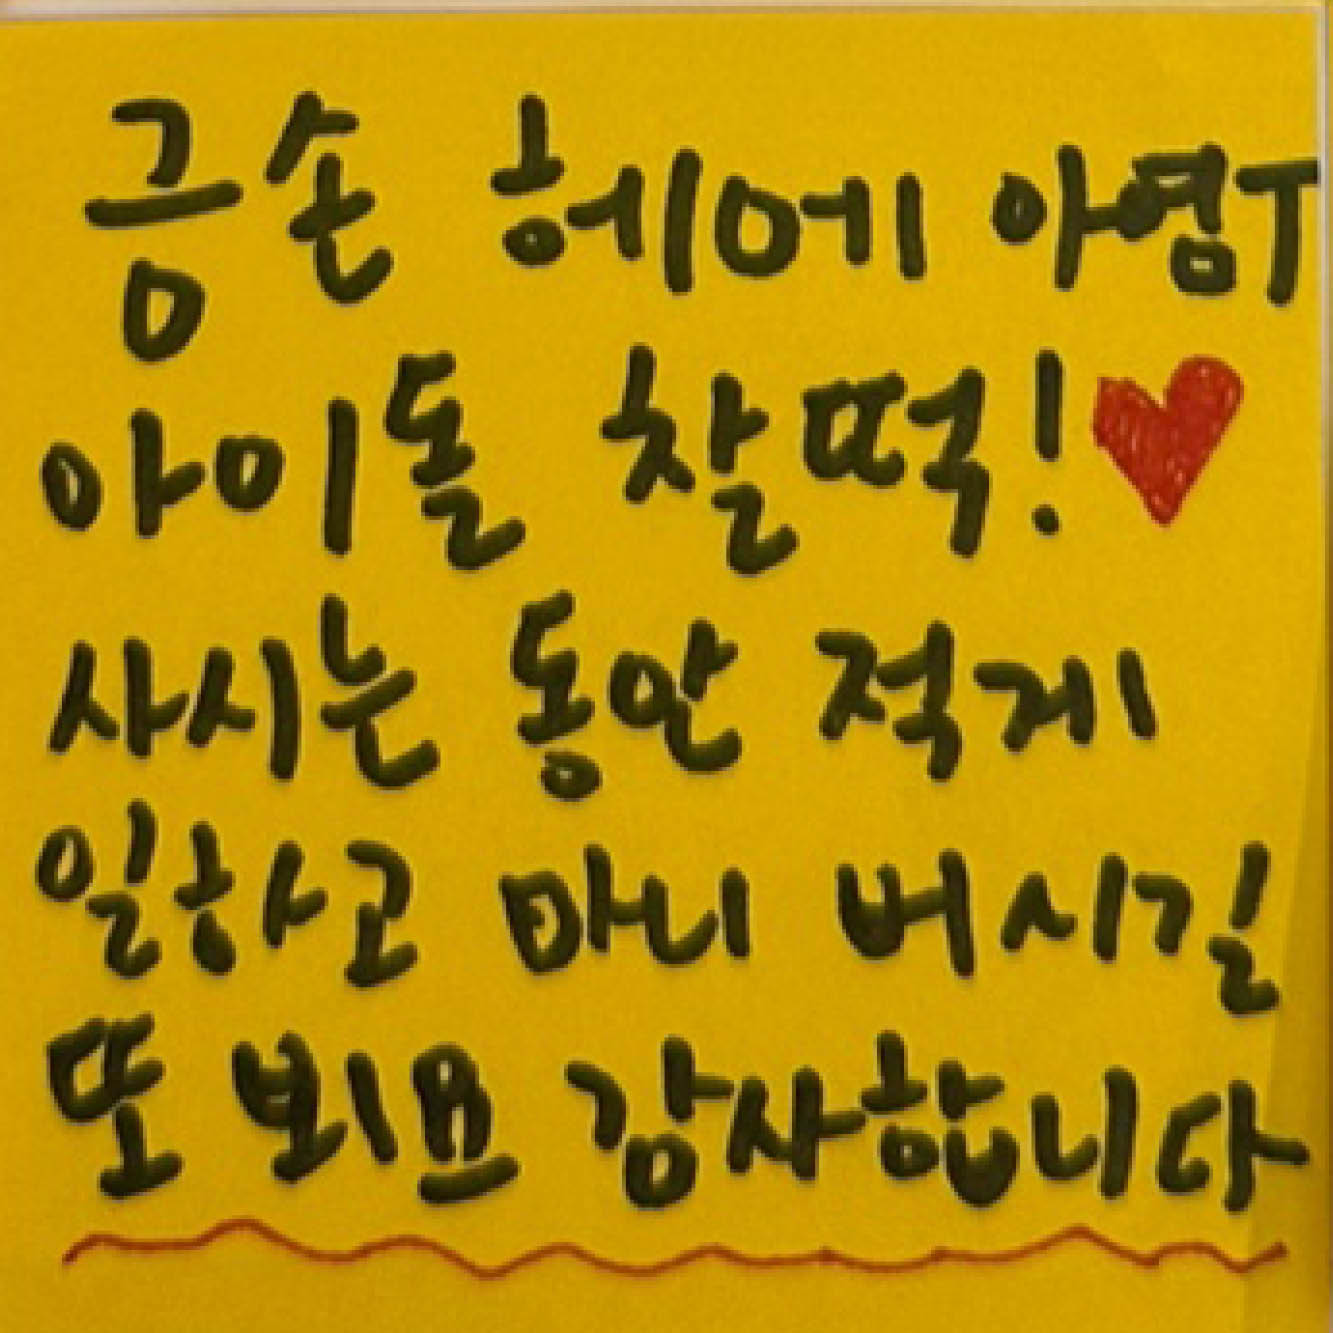 긍손 헤메 아염T
아이돌 찰떡!
사시는 동안 적게
일하고 마니 버시길
또 뵈요 감사합니다